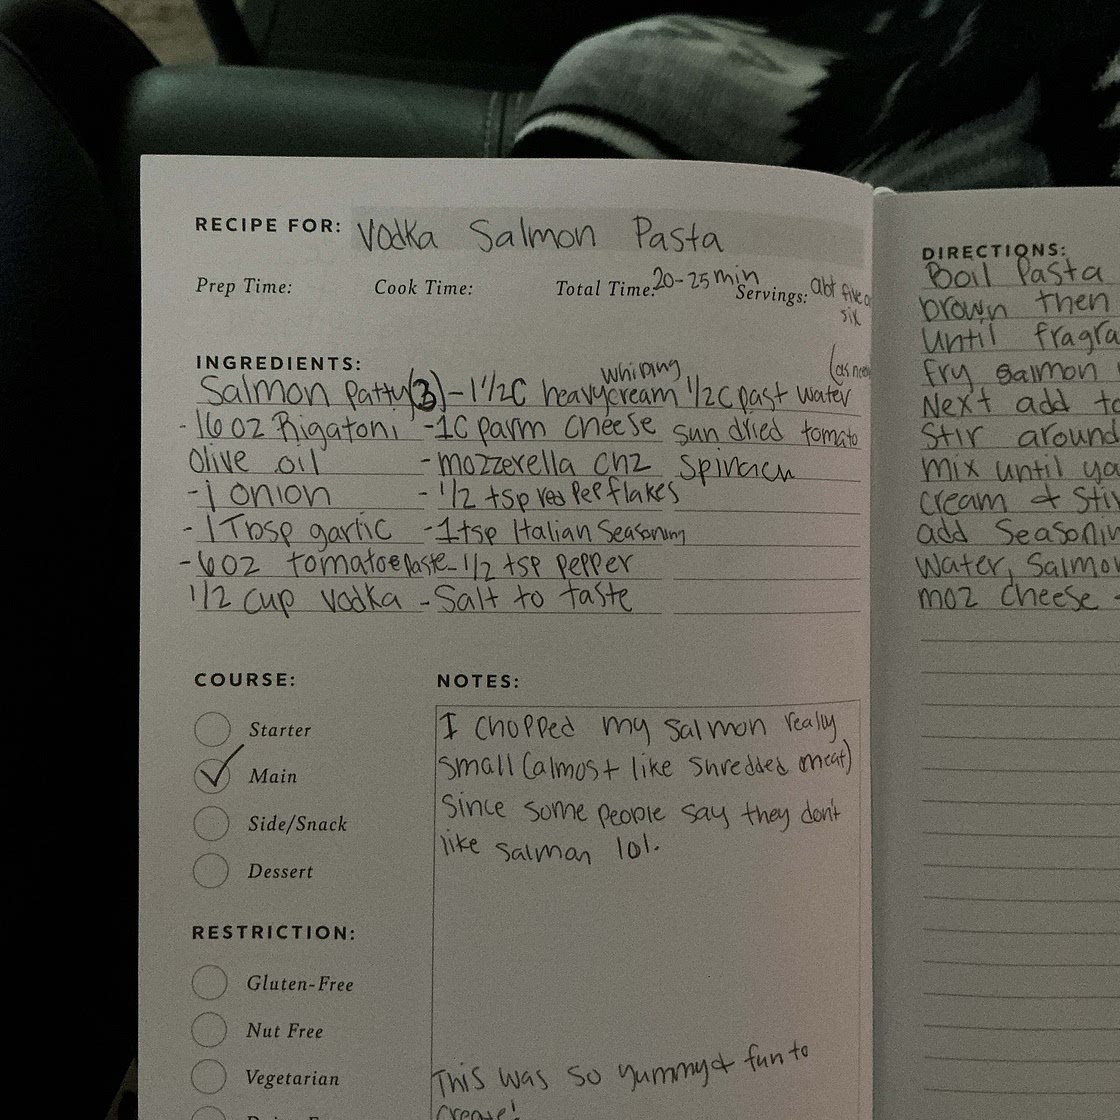 RECIPE FOR: Vodka Salmon Pasta
Prep Time: Cook Time: Total Time: 20-25 min Servings: abt five
six
INGREDIENTS:
Salmon Patty (3) - 1 1/2C heavy whiping cream 1/2C past water (as
- 16 oz Rigatoni - 1C parm cheese sun dried tomato
Olive oil - mozzerella chz Spinach
- 1 onion - 1/2 tsp red Pep flakes
- 1 Tbsp garlic - 1 tsp Italian Seasoning
- 6oz tomatoe paste - 1/2 tsp pepper
1/2 cup vodka - Salt to taste
COURSE:
Starter
Main
Side/Snack
Dessert
RESTRICTION:
Gluten-Free
Nut Free
Vegetarian
NOTES:
I chopped my salmon really
small (almost like shredded meat)
since some people say they don't
like salmon lol.
This was so yummy & fun to
create!
DIRECTIONS:
Boil Pasta
brown then
until
fry salmon
Next add to
Stir around
mix until
cream & 
add
Water,
moz cheese